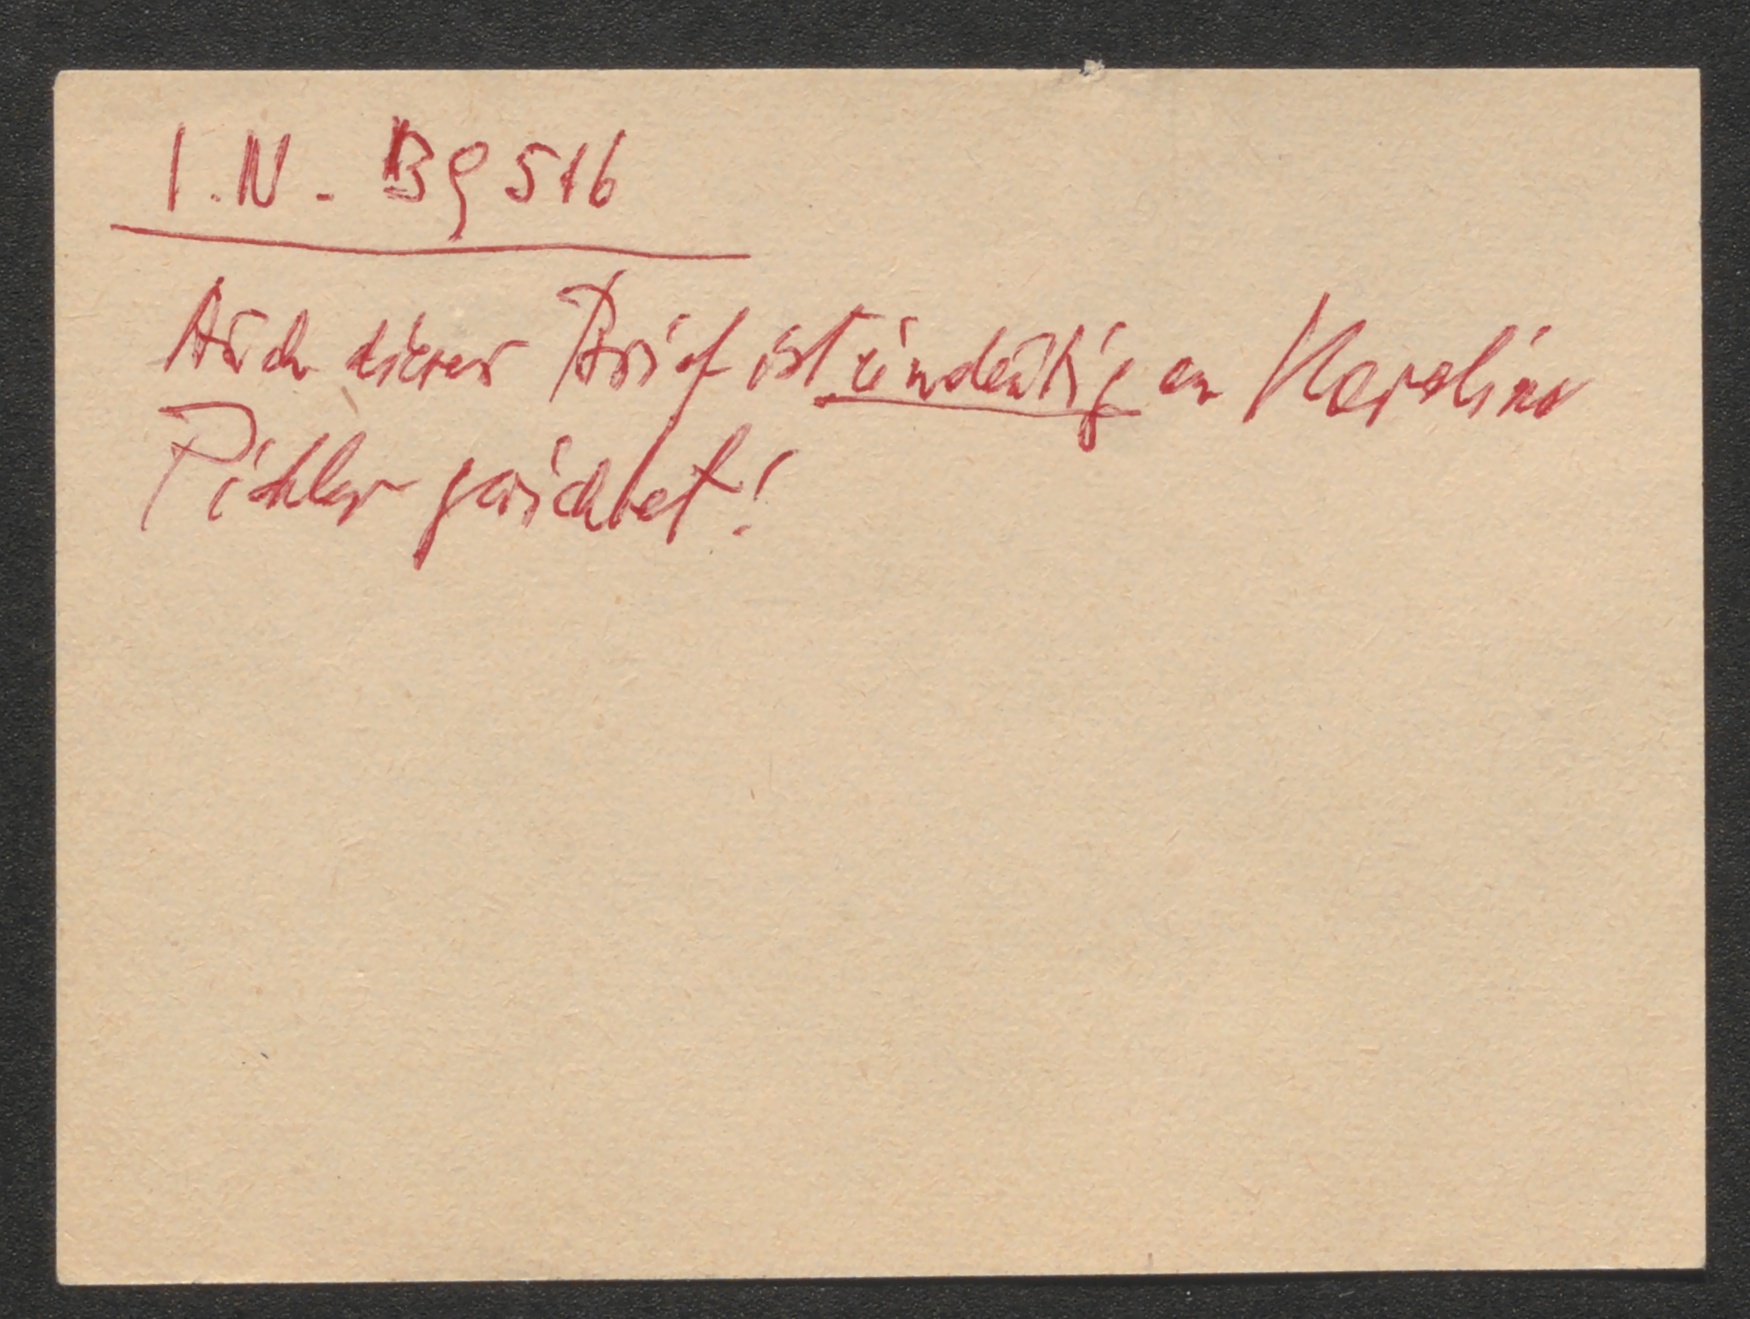 I.N. B9516
Auch dieser Brief ist eindeutig an Karoline
Pichler gerichtet!